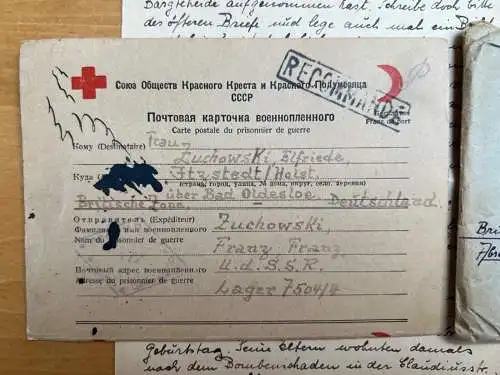 Bargteheide aufgenommen hast. Schreibe doch bitte
des öfteren Briefe und lege auch mal ein Bild
Союз Обществ Красного Креста и Красного Полумесяца
СССР
RECOMMANDÉ
Почтовая карточка военнопленного
Carte postale du prisonnier de guerre
Franc de port
Кому (Destinataire) Frau
Zuchowski, Elfriede
Куда Itzstedt/Holst.
(страна, город, улица, № дома, округ, село, деревня)
über Bad Oldesloe
Britische Zone. - Deutschland.
Отправитель (Expéditeur)
Фамилия и имя военнопленного Zuchowski,
Nom du prisonnier de guerre
Franz Franz
Почтовый адрес военнопленного U.d.S.S.R.
Adresse du prisonnier de guerre
Lager 7504/4
Geburtstag. Seine Eltern wohnten damals
nach dem Bombenschaden in der Claudiusstr.